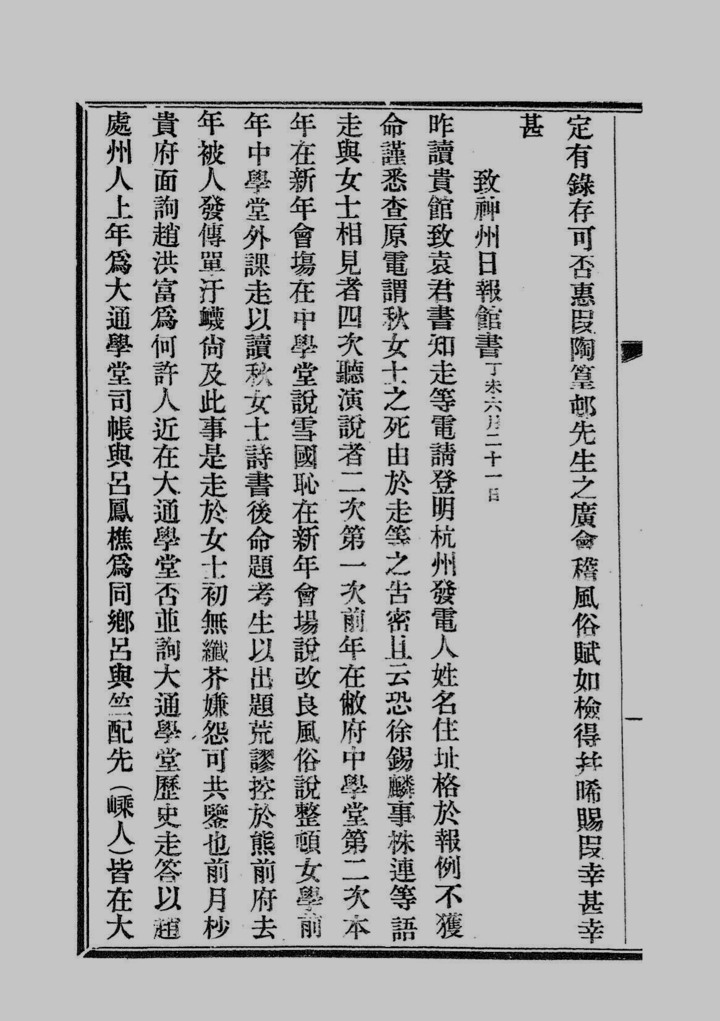 定有錄存可否惠叚陶篁邨先生之廣會稽風俗賦如檢得幷晞賜叚幸甚幸
甚
致神州日報館書丁未六月二十一日
昨讀貴館致袁君書知走等電請登明杭州發電人姓名住址格於報例不獲
命謹悉查原電謂秋女士之死由於走等之告密且云恐徐錫麟事株連等語
走與女士相見者四次聽演說者二次第一次前年在敝府中學堂第二次本
年在新年會塲在中學堂說雪國恥在新年會場說改良風俗說整頓女學前
年中學堂外課走以讀秋女士詩書後命題考生以出題荒謬控於熊前府去
年被人發傳單汙衊尙及此事是走於女士初無纖芥嫌怨可共鑒也前月杪
貴府面詢趙洪富爲何許人近在大通學堂否並詢大通學堂歷史走答以趙
處州人上年爲大通學堂司帳與呂鳳樵爲同鄉呂與竺配先（嵊人）皆在大